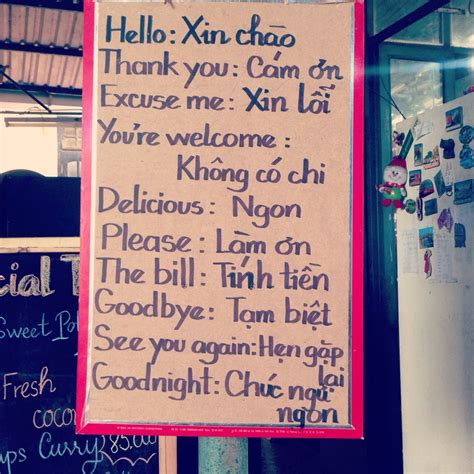 Hello: Xin chào
Thank you: Cám ơn
Excuse me: Xin lỗi
You're welcome:
Không có chi
Delicious: Ngon
Please: Làm ơn
The bill: Tính tiền
Goodbye: Tạm biệt
See you again: Hẹn gặp
lại
Goodnight: Chúc ngủ
ngon
cial T
Sweet Po
Fresh
coco
ps Curry 85.00